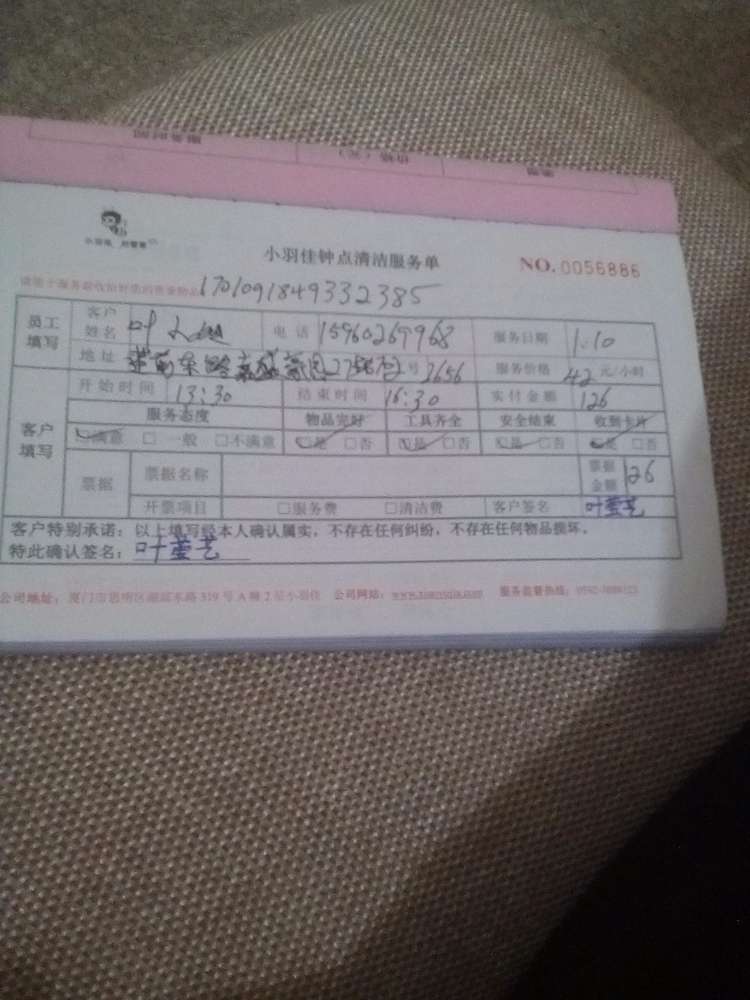 服务时间 价格（元）
小羽佳钟点清洁服务单 NO.0056886
170109184933 2385
员工填写 客户姓名 叶 电话 15960269968 服务日期 1.10
地址 号 2656 服务价格 42 元/小时
客户填写 开始时间 13:30 结束时间 16:30 实付金额 126
服务态度 物品完好 工具齐全 安全结束 收到卡片
满意 □ 一般 □不满意 是 □否 是 □否 是 □否 是 □否
票据 票据名称 票据金额 126
开票项目 □服务费 □清洁费 客户签名 叶莹艺
客户特别承诺：以上填写经本人确认属实，不存在任何纠纷，不存在任何物品损坏。
特此确认签名：叶莹艺
公司地址：厦门市思明区湖滨东路 319 号 A 幢 2 层小羽佳 公司网站： 服务监督热线：